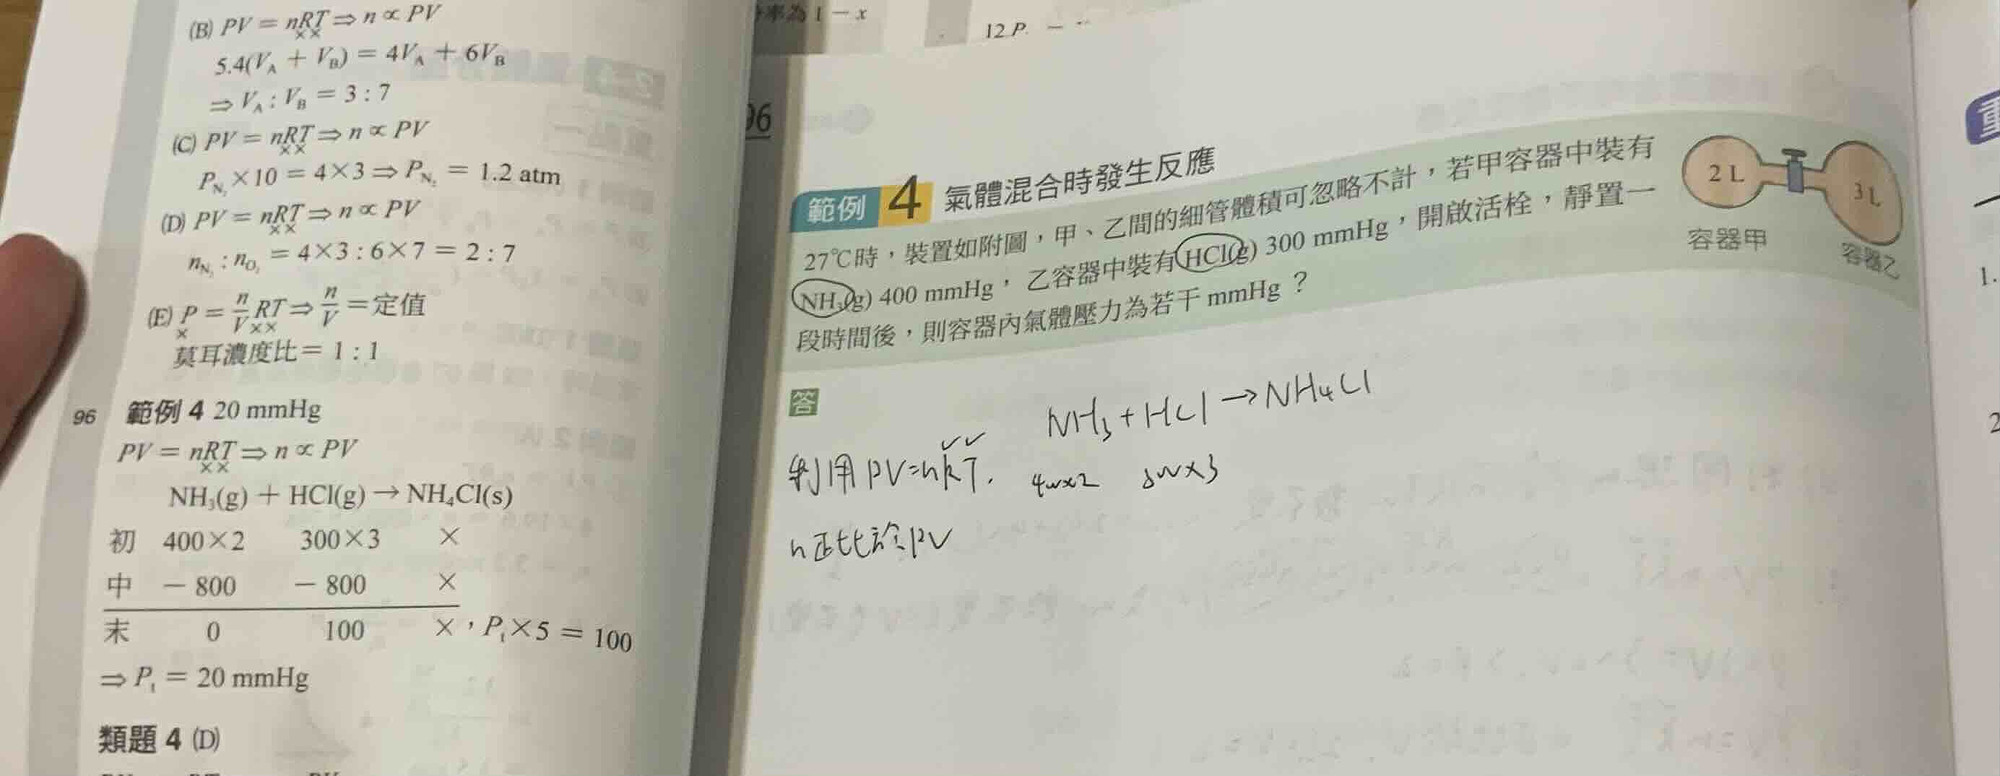 (B) PV = nRT ⇒ n ∝ PV
× ×
5.4(V_A + V_B) = 4V_A + 6V_B
⇒ V_A : V_B = 3 : 7
(C) PV = nRT ⇒ n ∝ PV
× ×
P_N₂ × 10 = 4 × 3 ⇒ P_N₂ = 1.2 atm
(D) PV = nRT ⇒ n ∝ PV
× ×
n_N₂ : n_O₂ = 4 × 3 : 6 × 7 = 2 : 7
(E) P = n/V RT ⇒ n/V = 定值
× × ×
莫耳濃度比 = 1 : 1
96 範例 4 20 mmHg
PV = nRT ⇒ n ∝ PV
× ×
NH₃(g) + HCl(g) → NH₄Cl(s)
初 400×2 300×3 ×
中 － 800 － 800 ×
末 0 100 × ，P_t × 5 = 100
⇒ P_t = 20 mmHg
類題 4 (D)
率為 1 － x
12 P.
96
範例 4 氣體混合時發生反應
27℃時，裝置如附圖，甲、乙間的細管體積可忽略不計，若甲容器中裝有
NH₃(g) 400 mmHg，乙容器中裝有 HCl(g) 300 mmHg，開啟活栓，靜置一
段時間後，則容器內氣體壓力為若干 mmHg？
2 L
3 L
容器甲
容器乙
答
NH₃ + HCl → NH₄Cl
利用 PV=nRT.
n正比於PV
1.
2
重